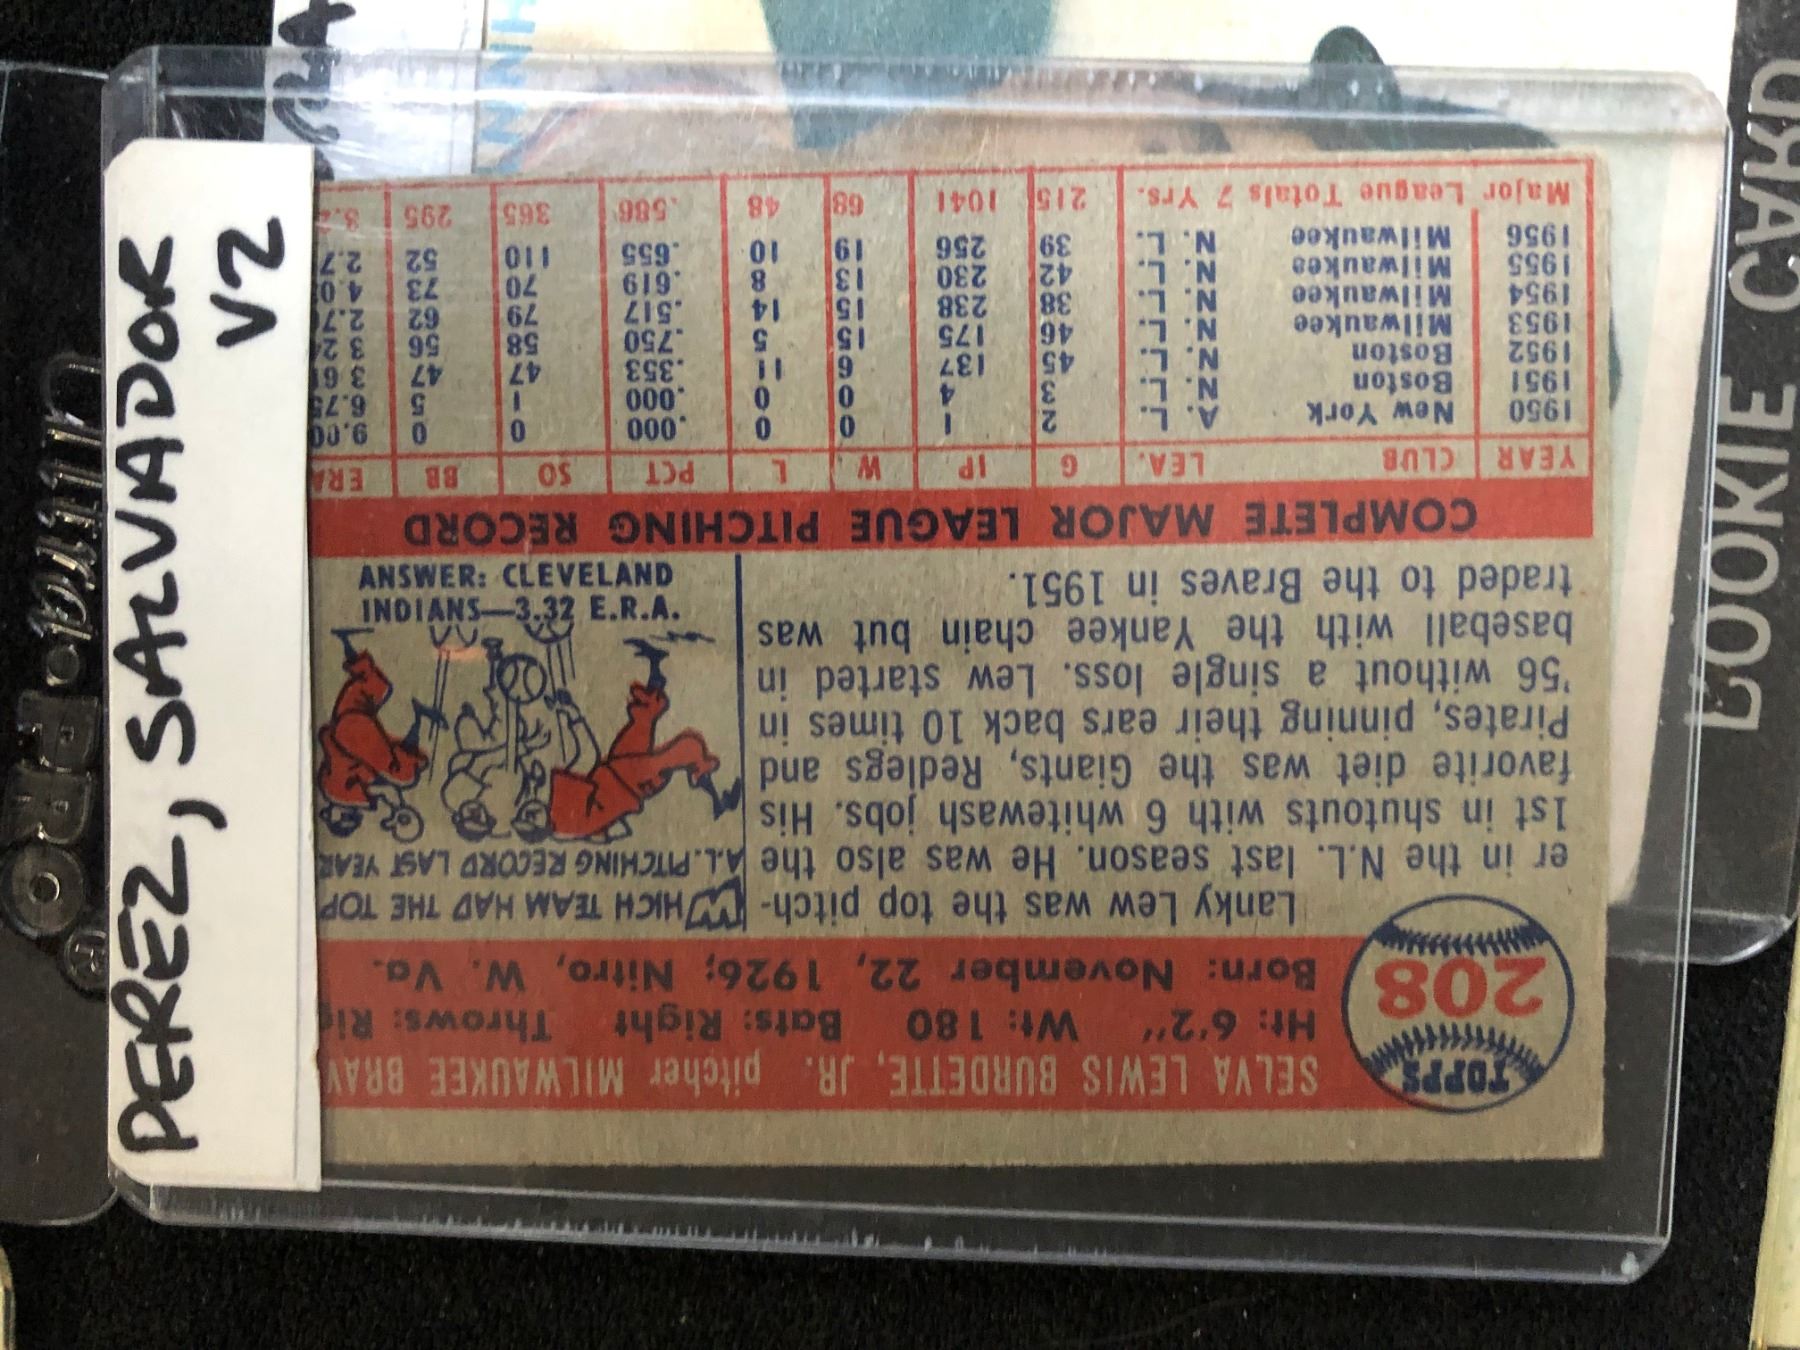 PEREZ, SALVADOR
V2
ultra·PRO®
ROOKIE CARD
TOPPS
208
SELVA LEWIS BURDETTE, JR. pitcher MILWAUKEE BRAV
Ht: 6'2" Wt: 180 Bats: Right Throws: Rig
Born: November 22, 1926; Nitro, W. Va.
Lanky Lew was the top pitch-
er in the N.L. last season. He was also the
1st in shutouts with 6 whitewash jobs. His
favorite diet was the Giants, Redlegs and
Pirates, pinning their ears back 10 times in
'56 without a single loss. Lew started in
baseball with the Yankee chain but was
traded to the Braves in 1951.
WHICH TEAM HAD THE TOP
A.L. PITCHING RECORD LAST YEAR
ANSWER: CLEVELAND
INDIANS—3.32 E.R.A.
COMPLETE MAJOR LEAGUE PITCHING RECORD
YEAR CLUB LEA. G IP W. L PCT SO BB ERA
1950 New York A. L. 2 1 0 0 .000 0 0 9.00
1951 Boston N. L. 3 4 0 0 .000 1 5 6.75
1952 Boston N. L. 45 137 6 11 .353 47 47 3.61
1953 Milwaukee N. L. 46 175 15 5 .750 58 56 3.24
1954 Milwaukee N. L. 38 238 15 14 .517 79 62 2.7
1955 Milwaukee N. L. 42 230 13 8 .619 70 73 4.0
1956 Milwaukee N. L. 39 256 19 10 .655 110 52 2.7
Major League Totals 7 Yrs. 215 1041 68 48 .586 365 295 3.2